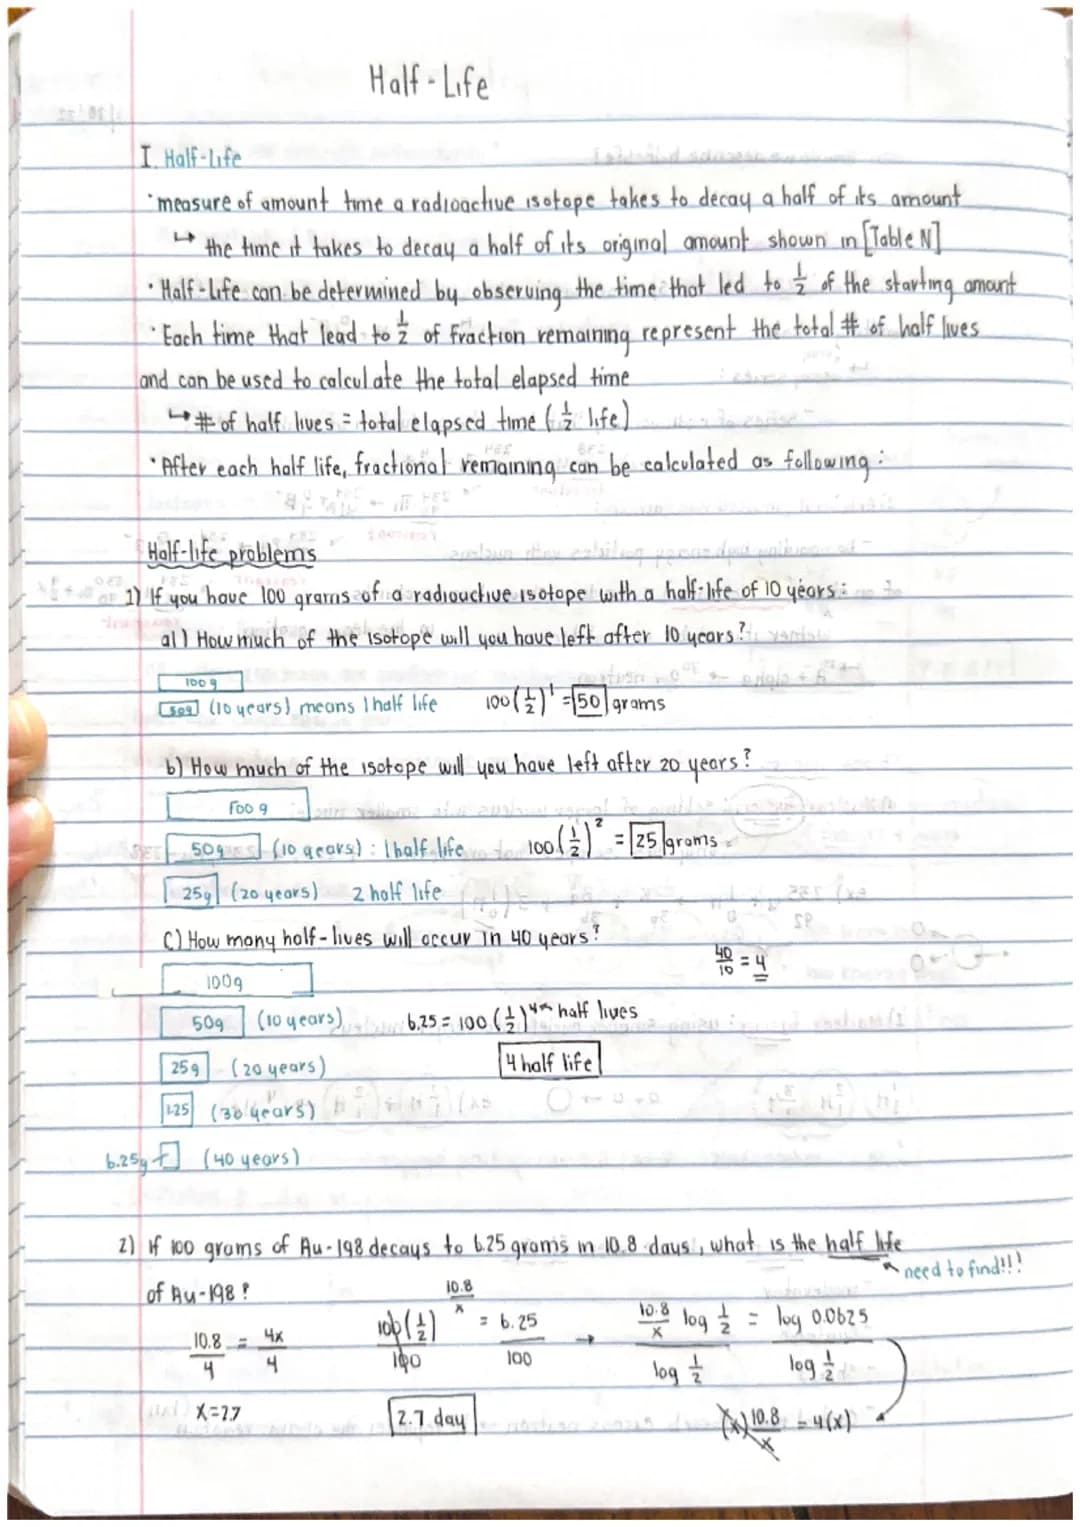 Half-Life
I. Half-Life
·measure of amount time a radioactive isotope takes to decay a half of its amount
↳ the time it takes to decay a half of its original amount shown in [Table N]
· Half-Life can be determined by observing the time that led to 1/2 of the starting amount
· Each time that lead to 1/2 of fraction remaining represent the total # of half lives
and can be used to calculate the total elapsed time
↳ # of half lives = total elapsed time (1/2 life)
· After each half life, fractional remaining can be calculated as following :
Half-life problems
1) If you have 100 grams of a radioactive isotope with a half-life of 10 years :
a1) How much of the isotope will you have left after 10 years?
100g
50g (10 years) means 1 half life 100(1/2)^1 = 50 grams
b) How much of the isotope will you have left after 20 years?
100 g
50g (10 years) : 1 half life 100(1/2)^2 = 25 grams
25g (20 years) 2 half life
C) How many half-lives will occur in 40 years?
100g 40/10 = 4
50g (10 years) 6.25 = 100 (1/2)^4 ← half lives
25g (20 years) 4 half life
1.25 (30 years)
6.25g (40 years)
2) If 100 grams of Au-198 decays to 6.25 grams in 10.8 days, what is the half life
need to find!!!
of Au-198?
10.8/4 = 4x/4 100(1/2)^(10.8/x)/100 = 6.25/100 → 10.8/x log 1/2 / log 1/2 = log 0.0625 / log 1/2
X=2.7 2.7 day (x) 10.8/x = 4(x)